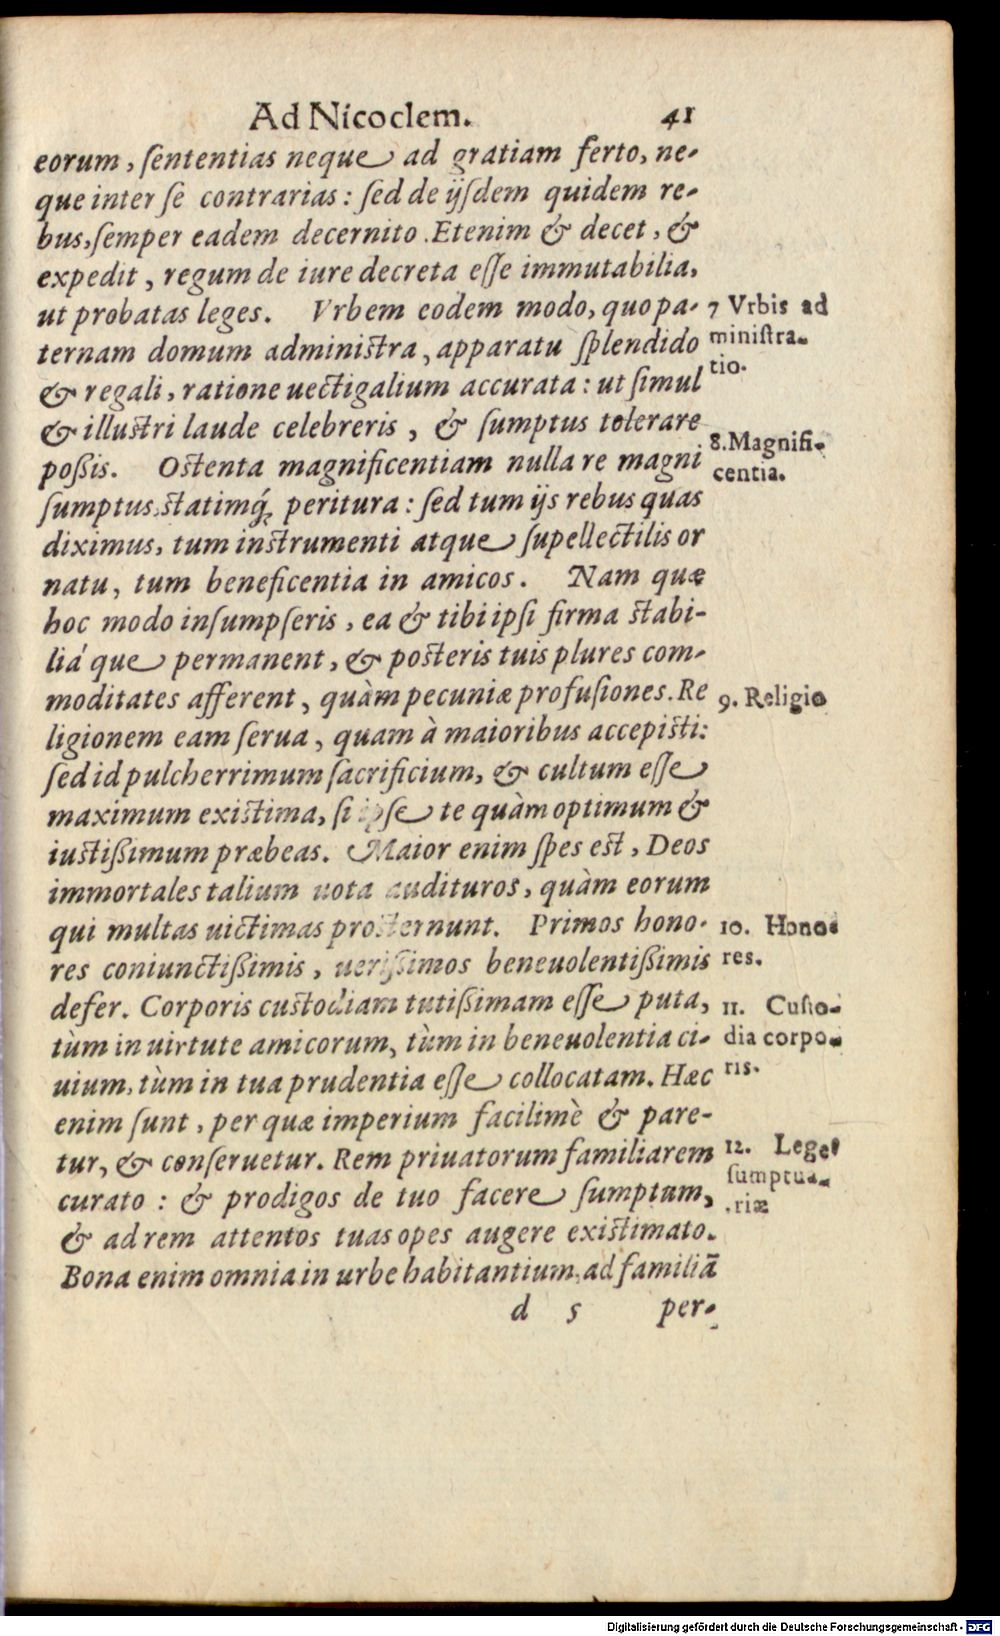 Ad Nicoclem. 41
eorum, sententias neque ad gratiam ferto, ne-
que inter se contrarias: sed de ijsdem quidem re-
bus, semper eadem decernito. Etenim & decet, &
expedit, regum de iure decreta esse immutabilia,
ut probatas leges. Vrbem eodem modo, quo pa-
ternam domum administra, apparatu splendido
& regali, ratione uectigalium accurata: ut simul
& illustri laude celebreris, & sumptus tolerare
poßis. Ostenta magnificentiam nulla re magni
sumptus, statimq́; peritura: sed tum ijs rebus quas
diximus, tum instrumenti atque supellectilis or
natu, tum beneficentia in amicos. Nam quæ
hoc modo insumpseris, ea & tibi ipsi firma stabi-
liá que permanent, & posteris tuis plures com-
moditates afferent, quàm pecuniæ profusiones. Re
ligionem eam serua, quam à maioribus accepisti:
sed id pulcherrimum sacrificium, & cultum esse
maximum existima, si ipse te quàm optimum &
iustißimum præbeas. Maior enim spes est, Deos
immortales talium uota audituros, quàm eorum
qui multas uictimas prosternunt. Primos hono-
res coniunctißimis, uerißimos beneuolentißimis
defer. Corporis custodiam tutißimam esse puta,
tum in uirtute amicorum, tùm in beneuolentia ci-
uium, tùm in tua prudentia esse collocatam. Hæc
enim sunt, per quæ imperium facilimè & pare-
tur, & conseruetur. Rem priuatorum familiarem
curato: & prodigos de tuo facere sumptum,
& ad rem attentos tuas opes augere existimato.
Bona enim omnia in urbe habitantium, ad familiā
d 5 per-
7 Vrbis ad
ministra-
tio.
8. Magnifi-
centia.
9. Religio
10. Hono-
res.
11. Custo-
dia corpo-
ris.
12. Leges
sumptua-
riæ
Digitalisierung gefördert durch die Deutsche Forschungsgemeinschaft - DFG